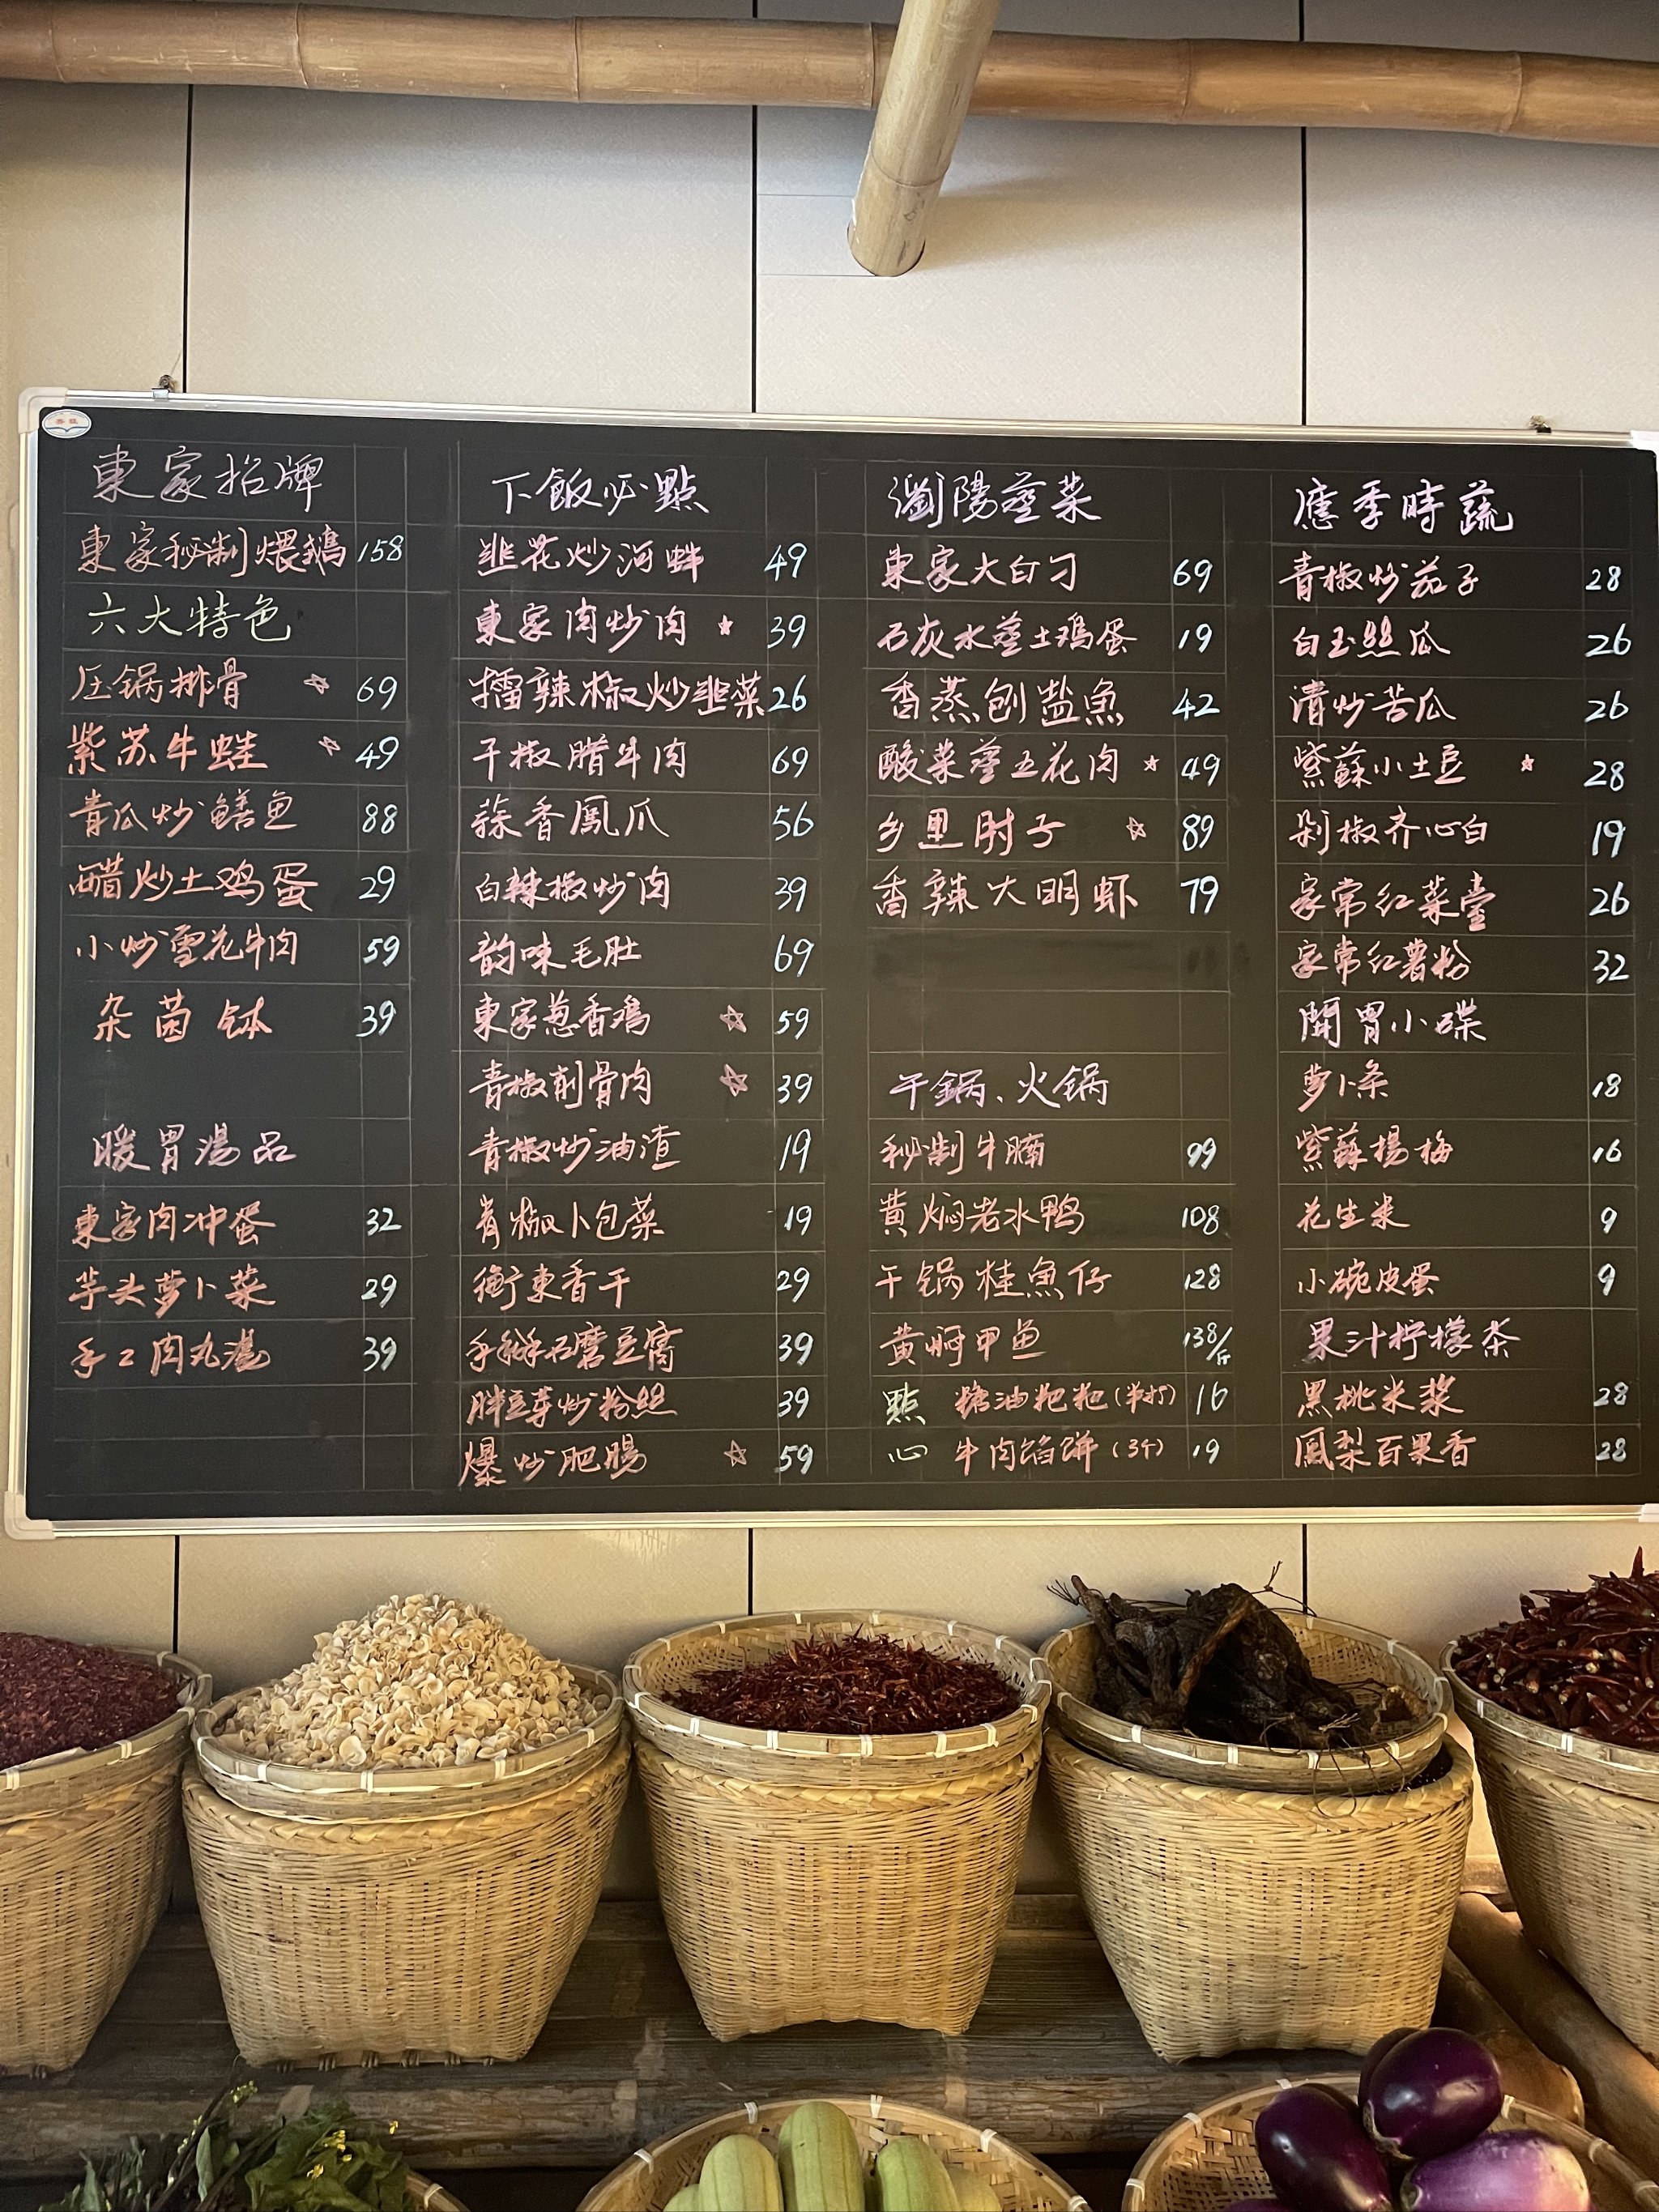 東家招牌
東家秘制煨鵝 158
六大特色
压锅排骨 ☆ 69
紫苏牛蛙 ☆ 49
青瓜炒鳝鱼 88
醋炒土鸡蛋 29
小炒雪花牛肉 59
杂菌钵 39
暖胃湯品
東家肉冲蛋 32
芋头萝卜菜 29
手工肉丸湯 39
下飯必點
韭花炒河蚌 49
東家肉炒肉 ☆ 39
擂辣椒炒韭菜 26
干椒腊牛肉 69
蒜香鳳爪 56
白辣椒炒肉 39
韵味毛肚 69
東家葱香鸡 ☆ 59
青椒削骨肉 ☆ 39
青椒炒油渣 19
青椒小包菜 19
衡東香干 29
手石磨豆腐 39
胖豆芽炒粉丝 39
爆炒肥腸 ☆ 59
瀏陽蒸菜
東家大白刁 69
石灰水蒸土鸡蛋 19
香蒸刨盐魚 42
酸菜蒸五花肉 ☆ 49
乡里肘子 ☆ 89
香辣大明虾 79
干鍋、火锅
秘制牛腩 99
黄焖老水鸭 108
干锅桂魚仔 128
黄焖甲鱼 138/斤
點 糖油粑粑(半打) 16
心 牛肉馅饼(3个) 19
應季時蔬
青椒炒茄子 28
白玉絲瓜 26
清炒苦瓜 26
紫蘇小土豆 ☆ 28
剁椒齐心白 19
家常红菜薹 26
家常红薯粉 32
開胃小碟
萝卜条 18
紫蘇楊梅 16
花生米 9
小碗皮蛋 9
果汁柠檬茶
黑桃米浆 28
鳳梨百果香 28